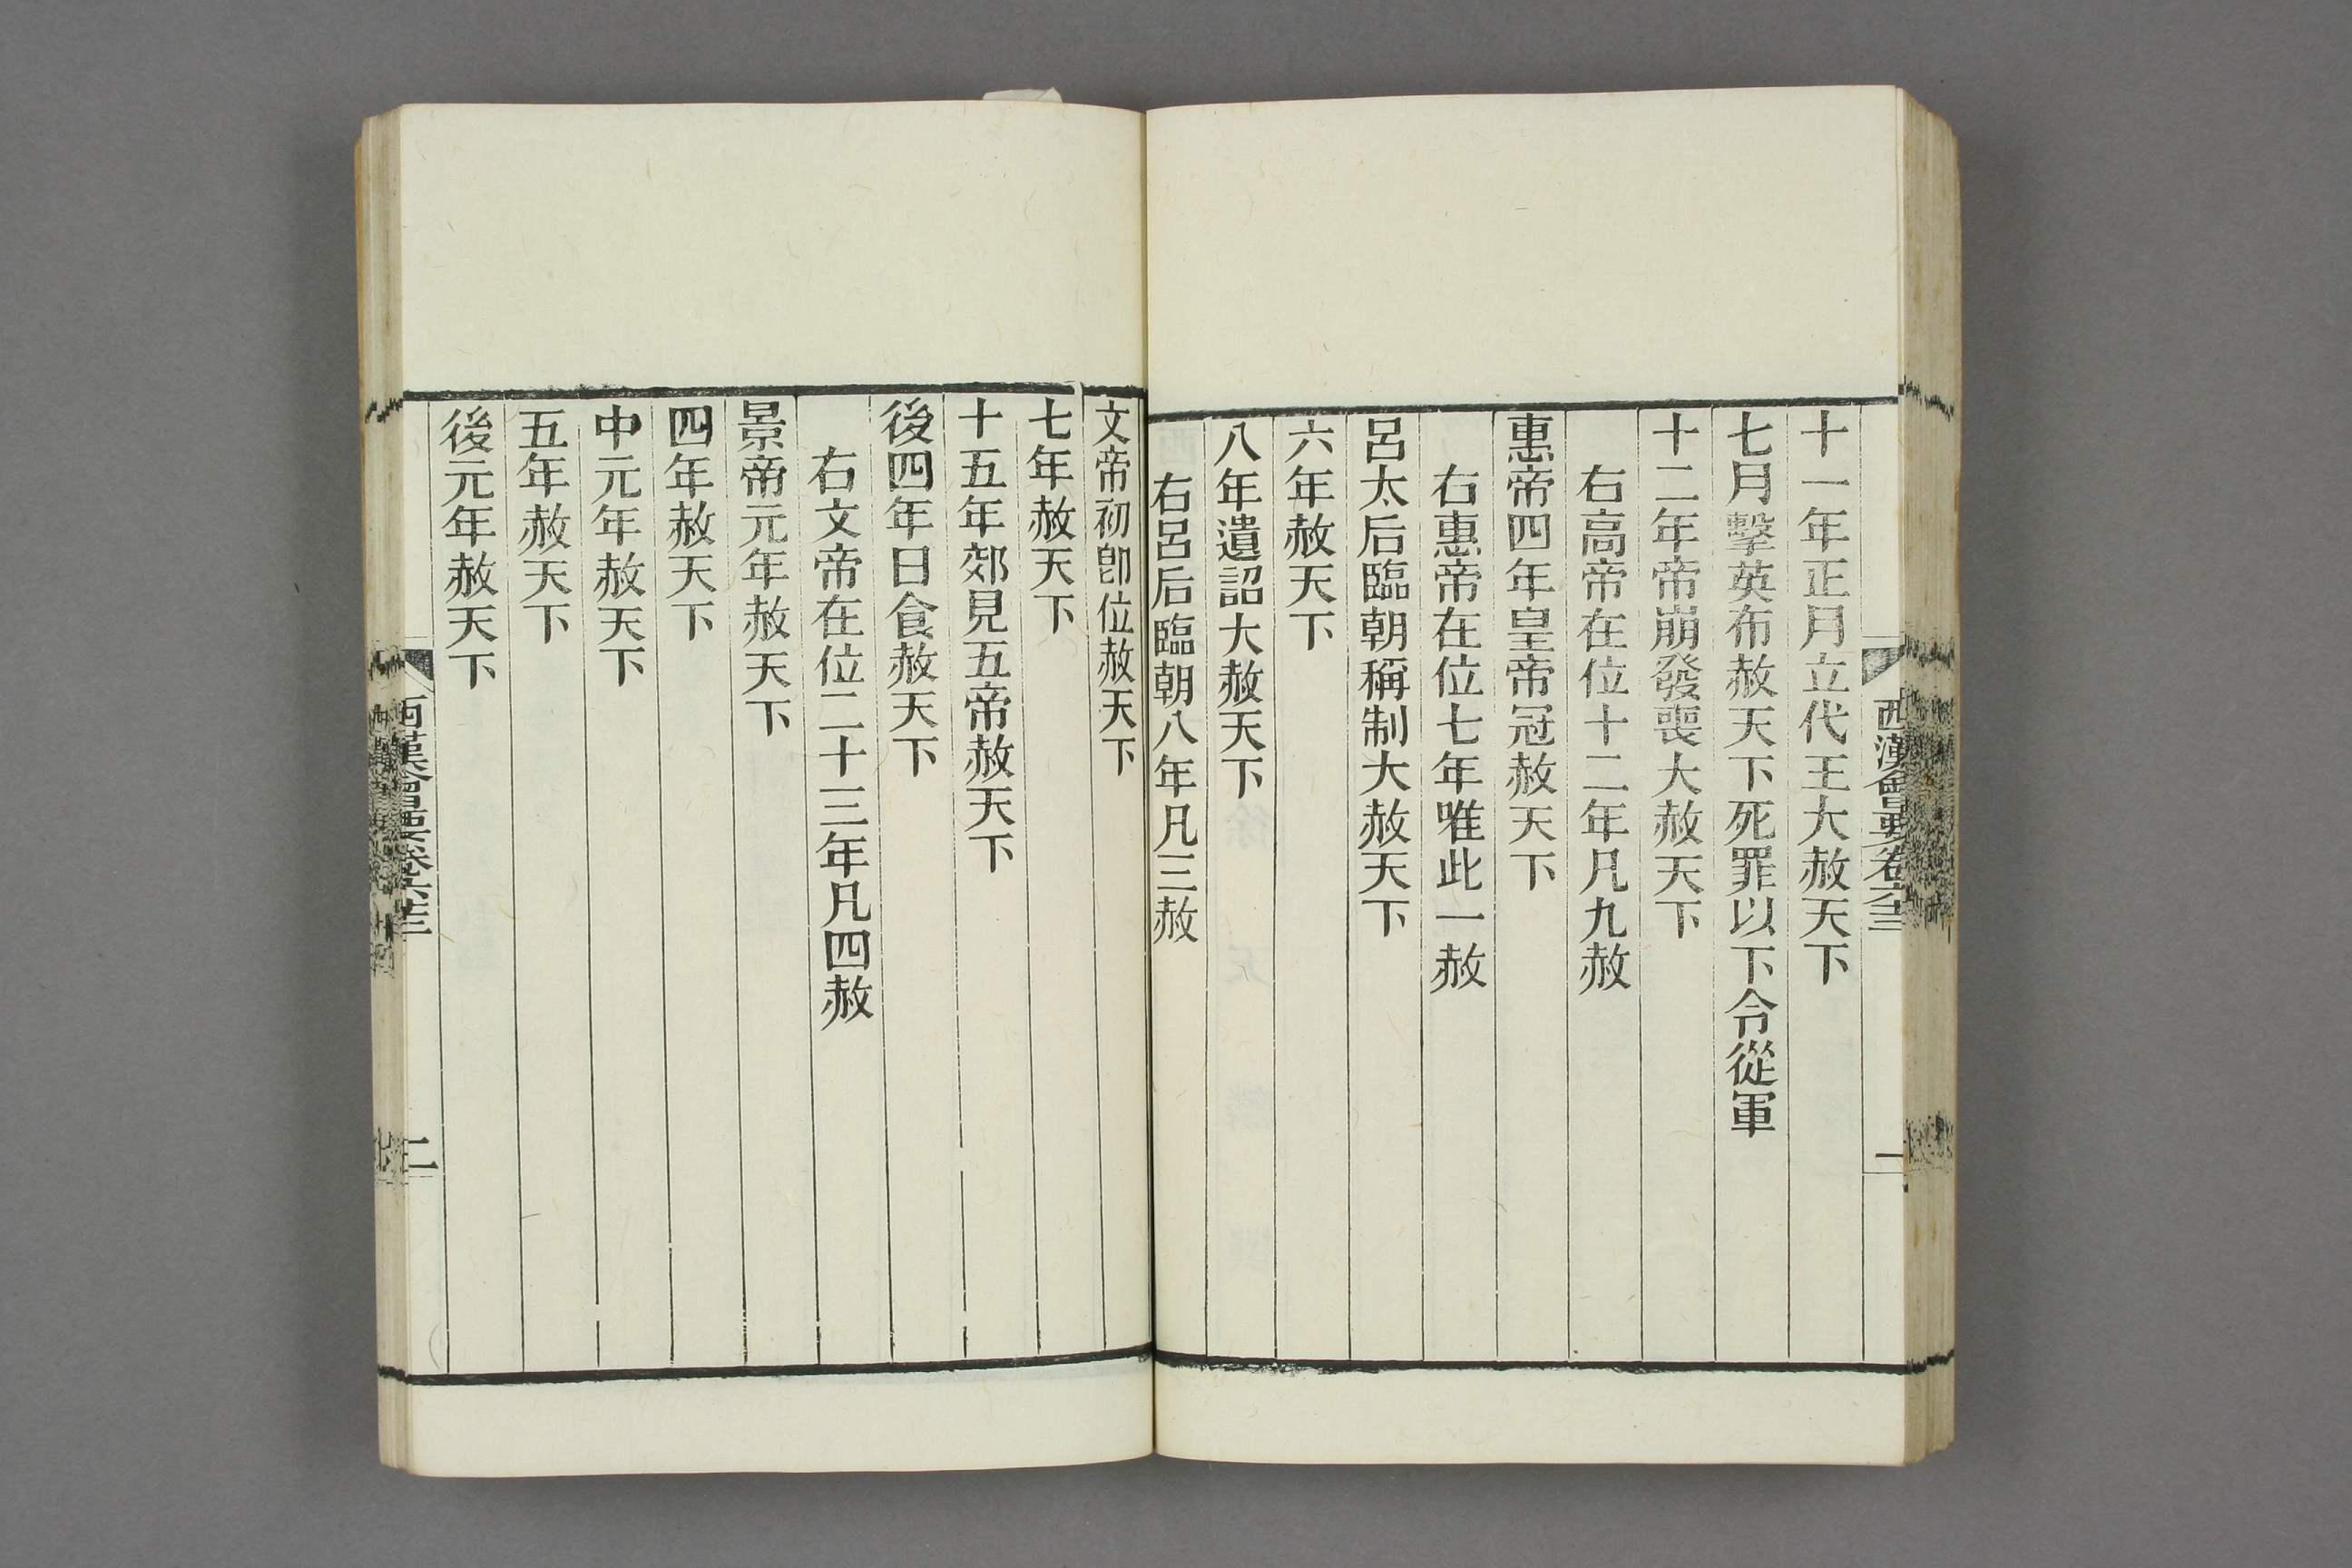 西漢會要卷六十三
一
十一年正月立代王大赦天下
七月擊英布赦天下死罪以下令從軍
十二年帝崩發喪大赦天下
右高帝在位十二年凡九赦
惠帝四年皇帝冠赦天下
右惠帝在位七年唯此一赦
呂太后臨朝稱制大赦天下
六年赦天下
八年遺詔大赦天下
右呂后臨朝八年凡三赦
文帝初卽位赦天下
七年赦天下
十五年郊見五帝赦天下
後四年日食赦天下
右文帝在位二十三年凡四赦
景帝元年赦天下
四年赦天下
中元年赦天下
五年赦天下
後元年赦天下
西漢會要卷六十三
二